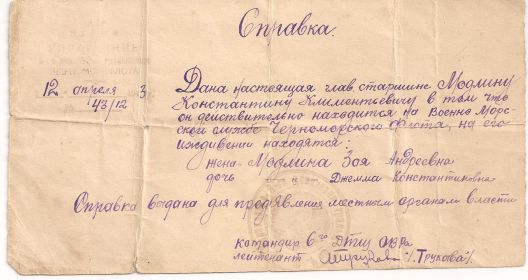 Справка.
12 апреля 3.
43/12
Дана настоящая глав. старшине Модлину
Константину Климентьевичу в том что
он действительно находится на Военно Мор-
ской службе Черноморского Флота, на его
иждивении находятся:
жена - Модлина Зоя Андреевна
дочь " Джемма Константиновна
Справка выдана для предъявления местным органам власти
командир 6го ОВРа
лейтенант /. Трукова /.